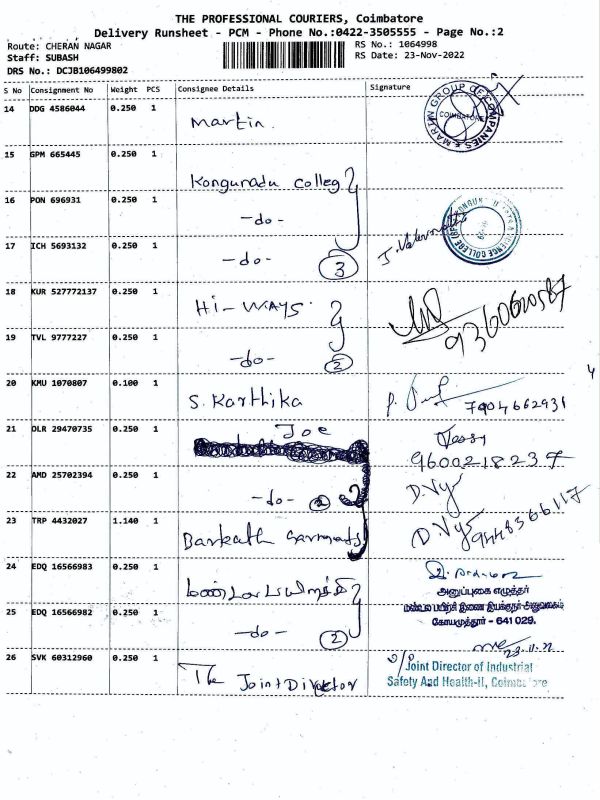 THE PROFESSIONAL COURIERS, Coimbatore
Delivery Runsheet - PCM - Phone No.:0422-3505555 - Page No.:2
Route: CHERAN NAGAR
RS No.: 1064998
Staff: SUBASH
RS Date: 23-Nov-2022
DRS No.: DCJB106499802
S No Consignment No Weight PCS Consignee Details Signature
14 DDG 4586044 0.250 1 Martin
MARTIN GROUP OF COMPANIES
COIMBATORE
15 GPM 665445 0.250 1 Konguradu Colleg
16 PON 696931 0.250 1 -do-
17 ICH 5693132 0.250 1 -do- 3
18 KUR 527772137 0.250 1 Hi-WAYS
9360620587
19 TVL 9777227 0.250 1 -do- 2
4
20 KMU 1070807 0.100 1 S. Karthika 7904662931
21 OLR 29470735 0.250 1 Joe
9600218237
22 AMD 25702394 0.250 1 -do- 2 D.Vy
23 TRP 4432027 1.140 1 Barkath Garments D.Vy 9448366117
24 EDQ 16566983 0.250 1
அனுப்புகை எழுத்தர்
மண்டல பயிற்சி இணை இயக்குநர் அலுவலகம்
25 EDQ 16566982 0.250 1 -do- 2 கோயமுத்தூர் - 641 029.
23.11.22
26 SVK 60312960 0.250 1 The Joint Director
Joint Director of Industrial
Safety And Health-II, Coimbatore